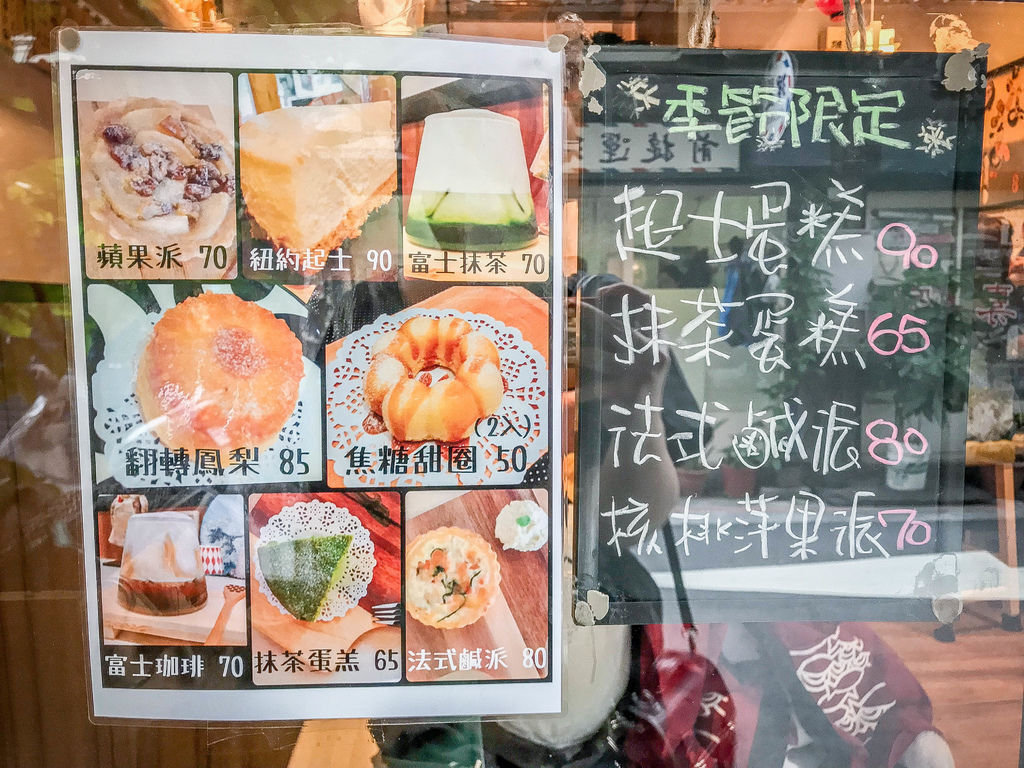 蘋果派 70
紐約起士 90
富士抹茶 70
翻轉鳳梨 85
(2入)
焦糖甜圈 50
富士珈琲 70
抹茶蛋羔 65
法式鹹派 80
季節限定
起士蛋糕 90
抹茶蛋糕 65
法式鹹派 80
核桃苹果派 70